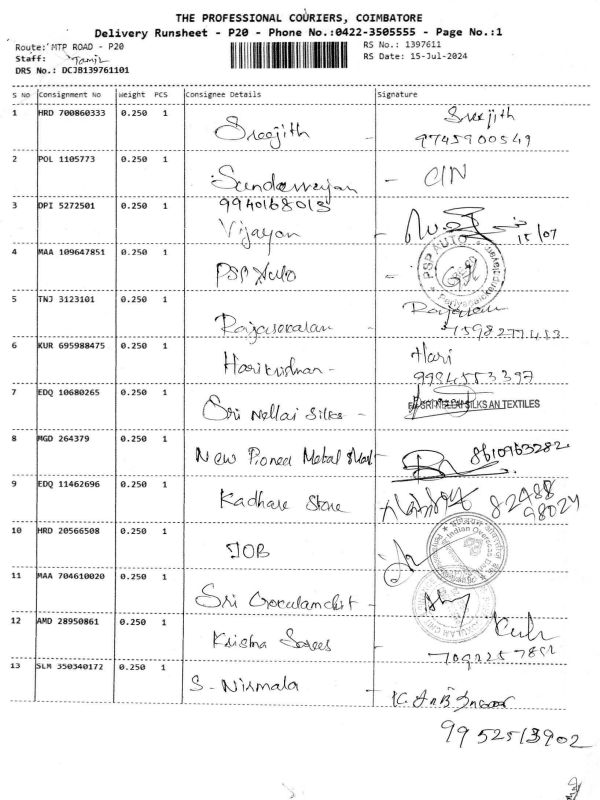 THE PROFESSIONAL COURIERS, COIMBATORE
Delivery Runsheet - P20 - Phone No.:0422-3505555 - Page No.:1
Route: MTP ROAD - P20
RS No.: 1397611
Staff: Tamil
RS Date: 15-Jul-2024
DRS No.: DCJB139761101
S No Consignment No Weight PCS Consignee Details Signature
1 HRD 700860333 0.250 1 Sreejith - Sreejith
9745900549
2 POL 1105773 0.250 1 - CIN
9940168013
3 DPI 5272501 0.250 1 Vijayan - 15/07
4 MAA 109647851 0.250 1 PSP Auto - PSP AUTO
5 TNJ 3123101 0.250 1 Rajasekaran -
6 KUR 695988475 0.250 1 Harikrishnan - Hari
9984553397
7 EDQ 10680265 0.250 1 Sri Nellai Silks - SRI NELLAI SILKS AN TEXTILES
8 MGD 264379 0.250 1 New Metal Mart - 8610963282
9 EDQ 11462696 0.250 1 Store 82488
98024
10 HRD 20566508 0.250 1 IOB Indian Overseas Bank
11 MAA 704610020 0.250 1 Sri -
12 AMD 28950861 0.250 1 Krishna Sarees -
13 SLM 350340172 0.250 1 S. Nirmala -
9952513902